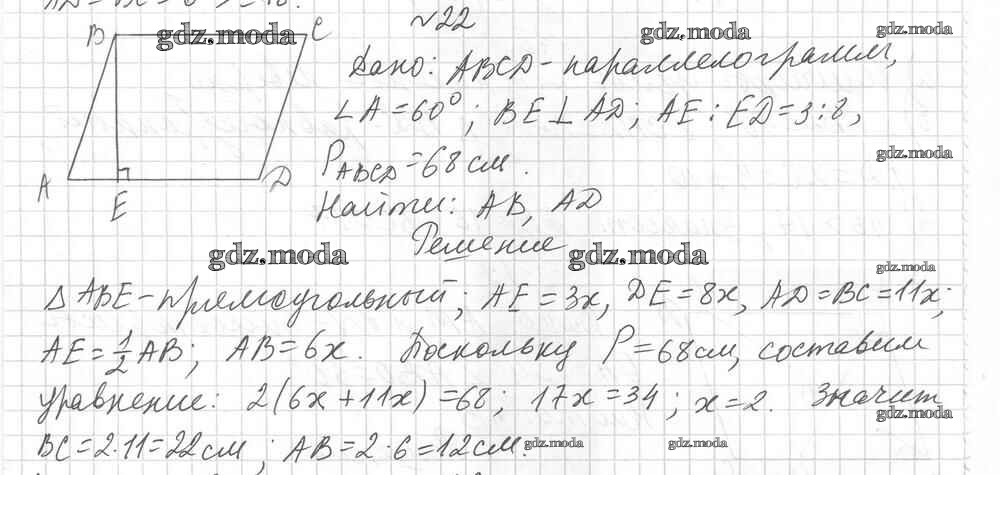 №22
B C
gdz.moda gdz.moda gdz.moda
Дано: ABCD - параллелограмм,
∠A = 60°; BE ⊥ AD; AE : ED = 3 : 8,
gdz.moda
P ABCD = 68 см.
A E D
Найти: AB, AD
Решение
gdz.moda gdz.moda gdz.moda
△ ABE - прямоугольный; AE = 3x, DE = 8x, AD = BC = 11x;
AE = 1/2 AB; AB = 6x. Поскольку P = 68 см, составим
уравнение: 2(6x + 11x) = 68; 17x = 34; x = 2. Значит
gdz.moda
BC = 2·11 = 22 см; AB = 2·6 = 12 см.
gdz.moda gdz.moda